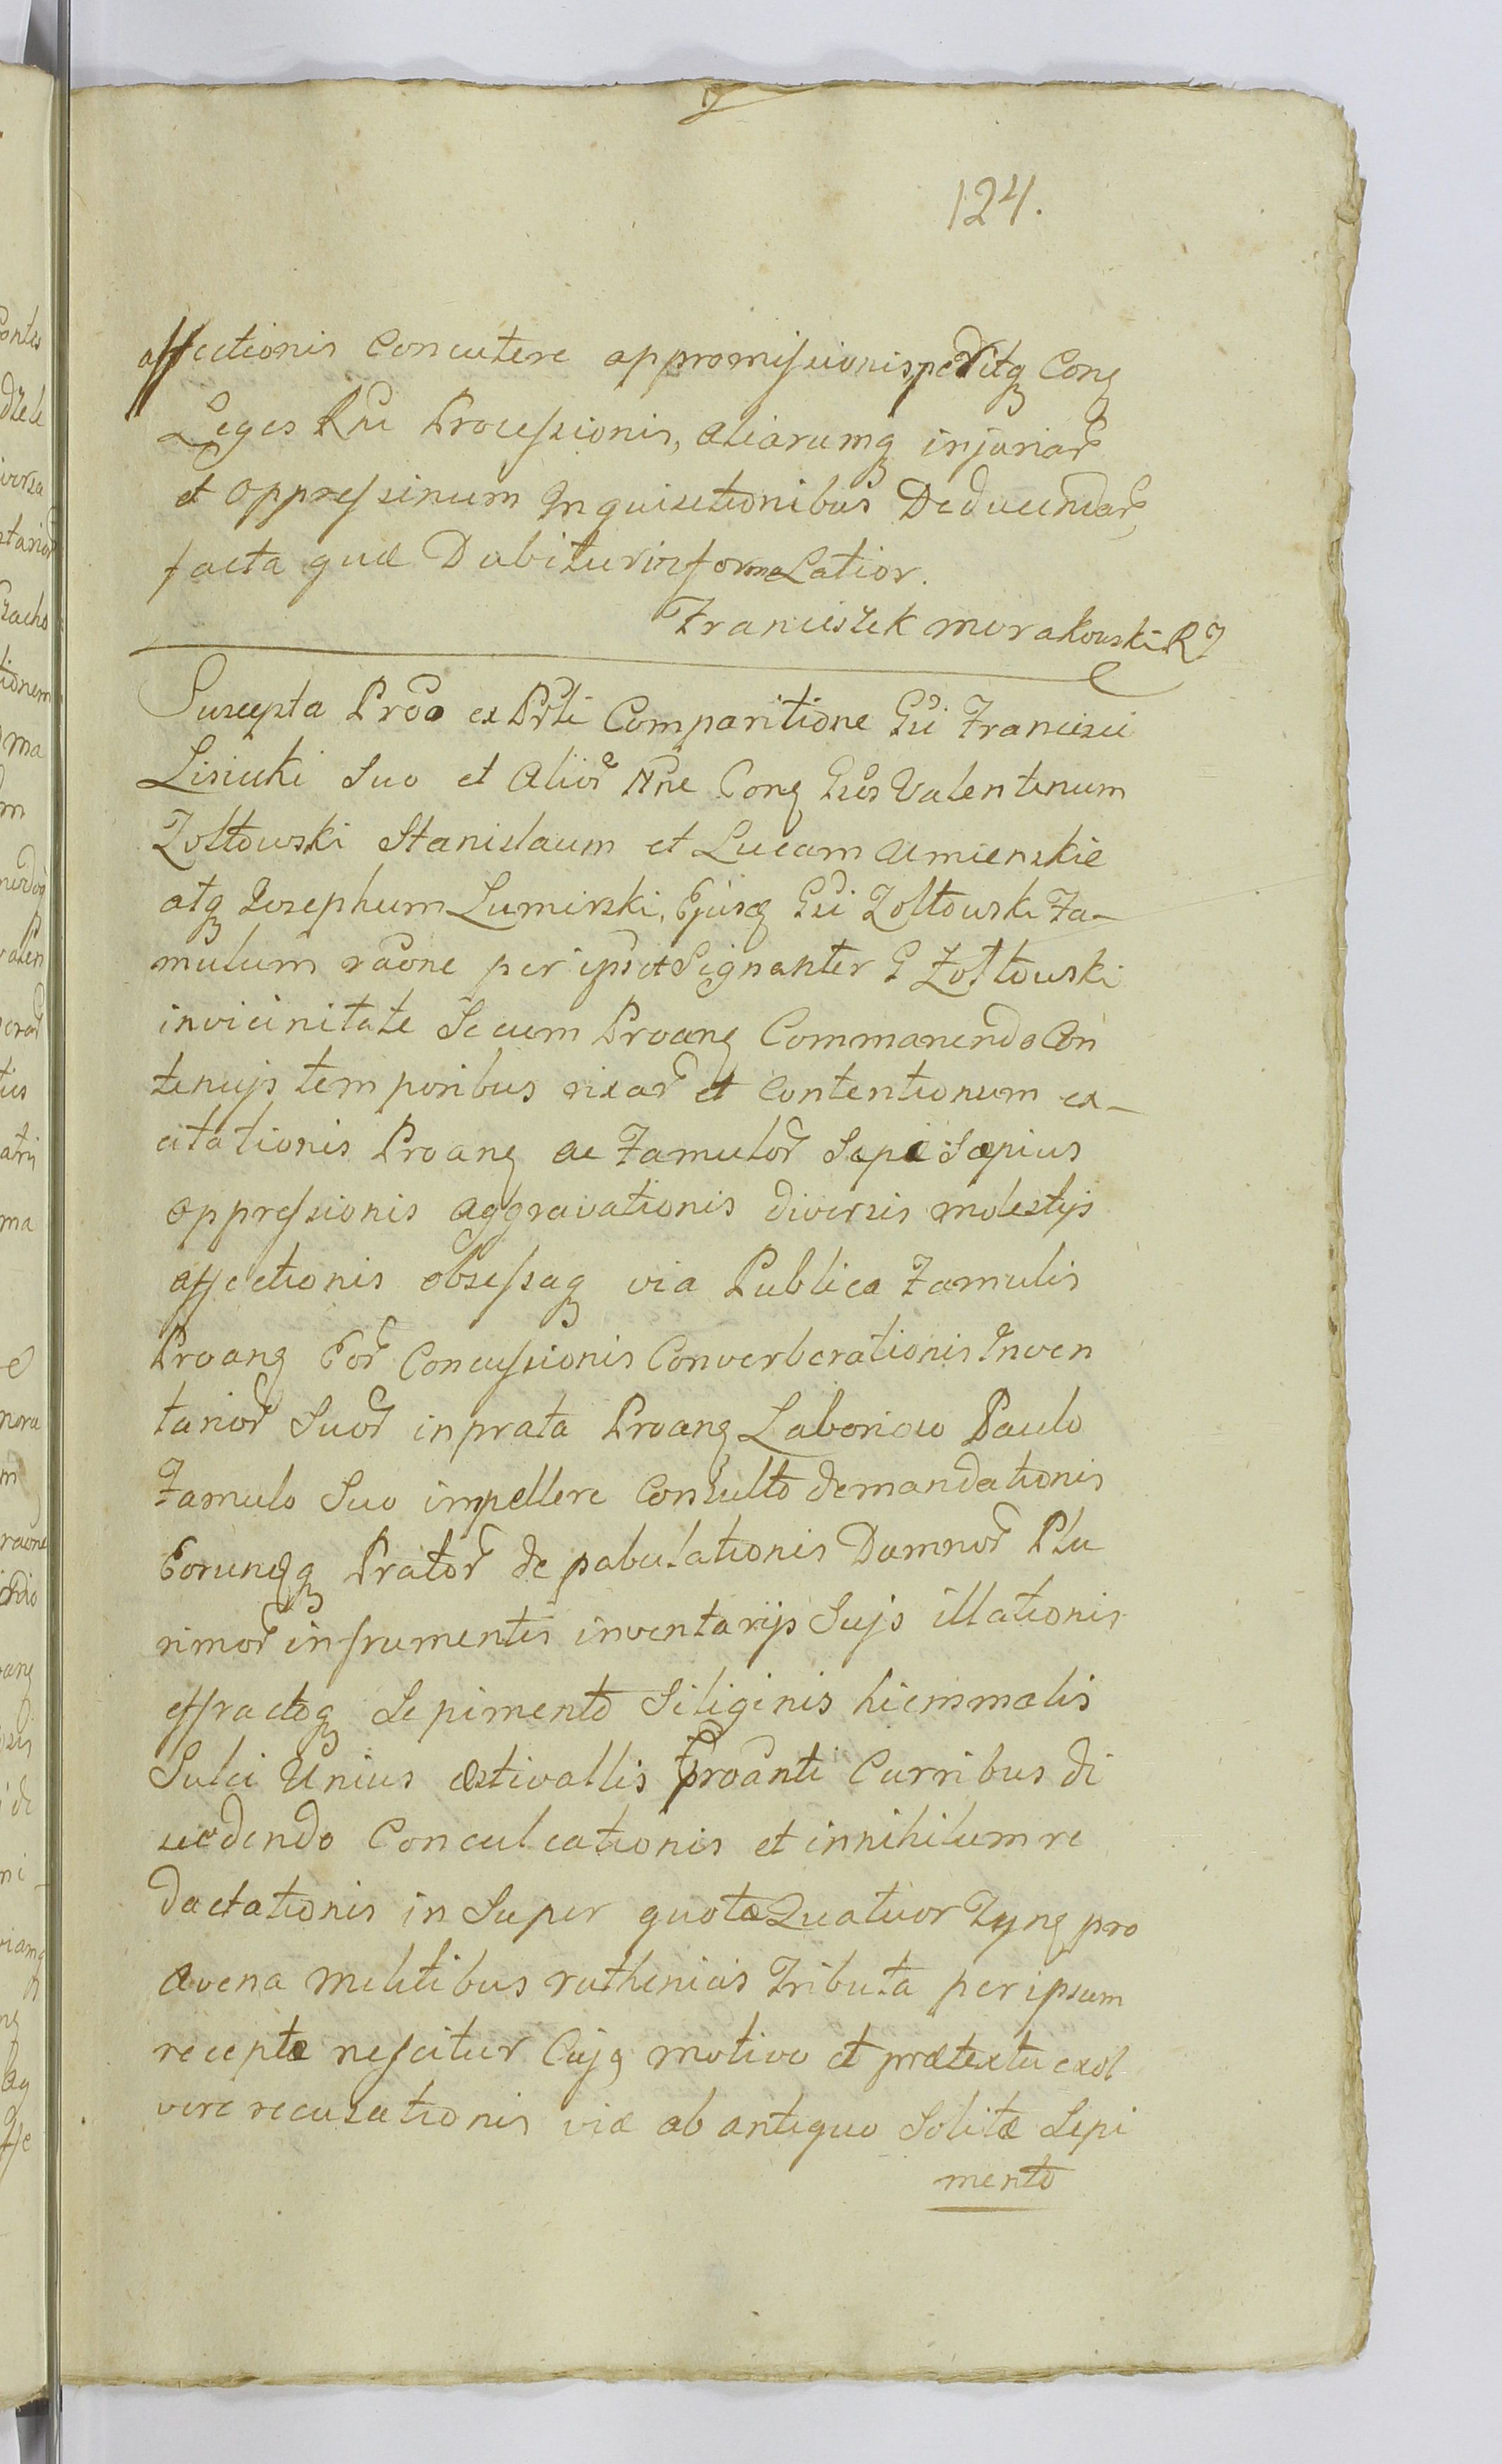 124.
affectionis Concutere appromissionis, peditq Conq
Leges Rni Processionis, aliarumq injuriar
et oppressinum Inquisitionibus Deducendar,
facta quæ Dabitur in forma Latior.
Franciszek morakowski RJ
Suscepta Prõo ex Prti Comparitione Gsi Francisci
Lisicki Suo et Alior Nne Conq Gsos Valentinum
Zołtowski Stanislaum et Lucam Umienskie
atq Josephum Lumirski, Ejusq Gsi Zołtowski Fa-
mulum raõne per ipsos et Signanter G Zołtowski
in vicinitate Secum Proanq Commanendo Con
tinujs temporibus rixar et Contentionum ex-
citationis Proanq ac Famulor Sæpe Sæpius
oppressionis aggravationis diversis molestijs
affectionis obsessaq via Publica Famulis
Proanq Eor Concussionis Converberationis Inven
tarior Suor in prata Proanq Laborioso Paulo
Famulo Suo impellere Consulto demandationis
Eorundq Prator depabulationis Damnor Plu
rimor in frumentis inventarijs Sujs illationis
effractoq Sepimento Siliginis hiemmalis
Sulci Unius æstivallis Proanti Curribus di
vedendo Conculcationis et in nihilum re
dactationis in Super quotæ Quatuor Tynq pro
avena militibus ruthenicis Tributa per ipsum
receptæ nescitur Cujq motivo et prætextu exol
vere recusationis viæ ab antiquo Solitæ Sepi
mento